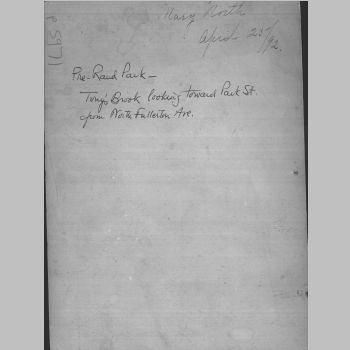 Mary North
April 25/92.
P 5971
Pre-Rand Park –
Tony's Brook looking toward Park St.
from North Fullerton Ave.